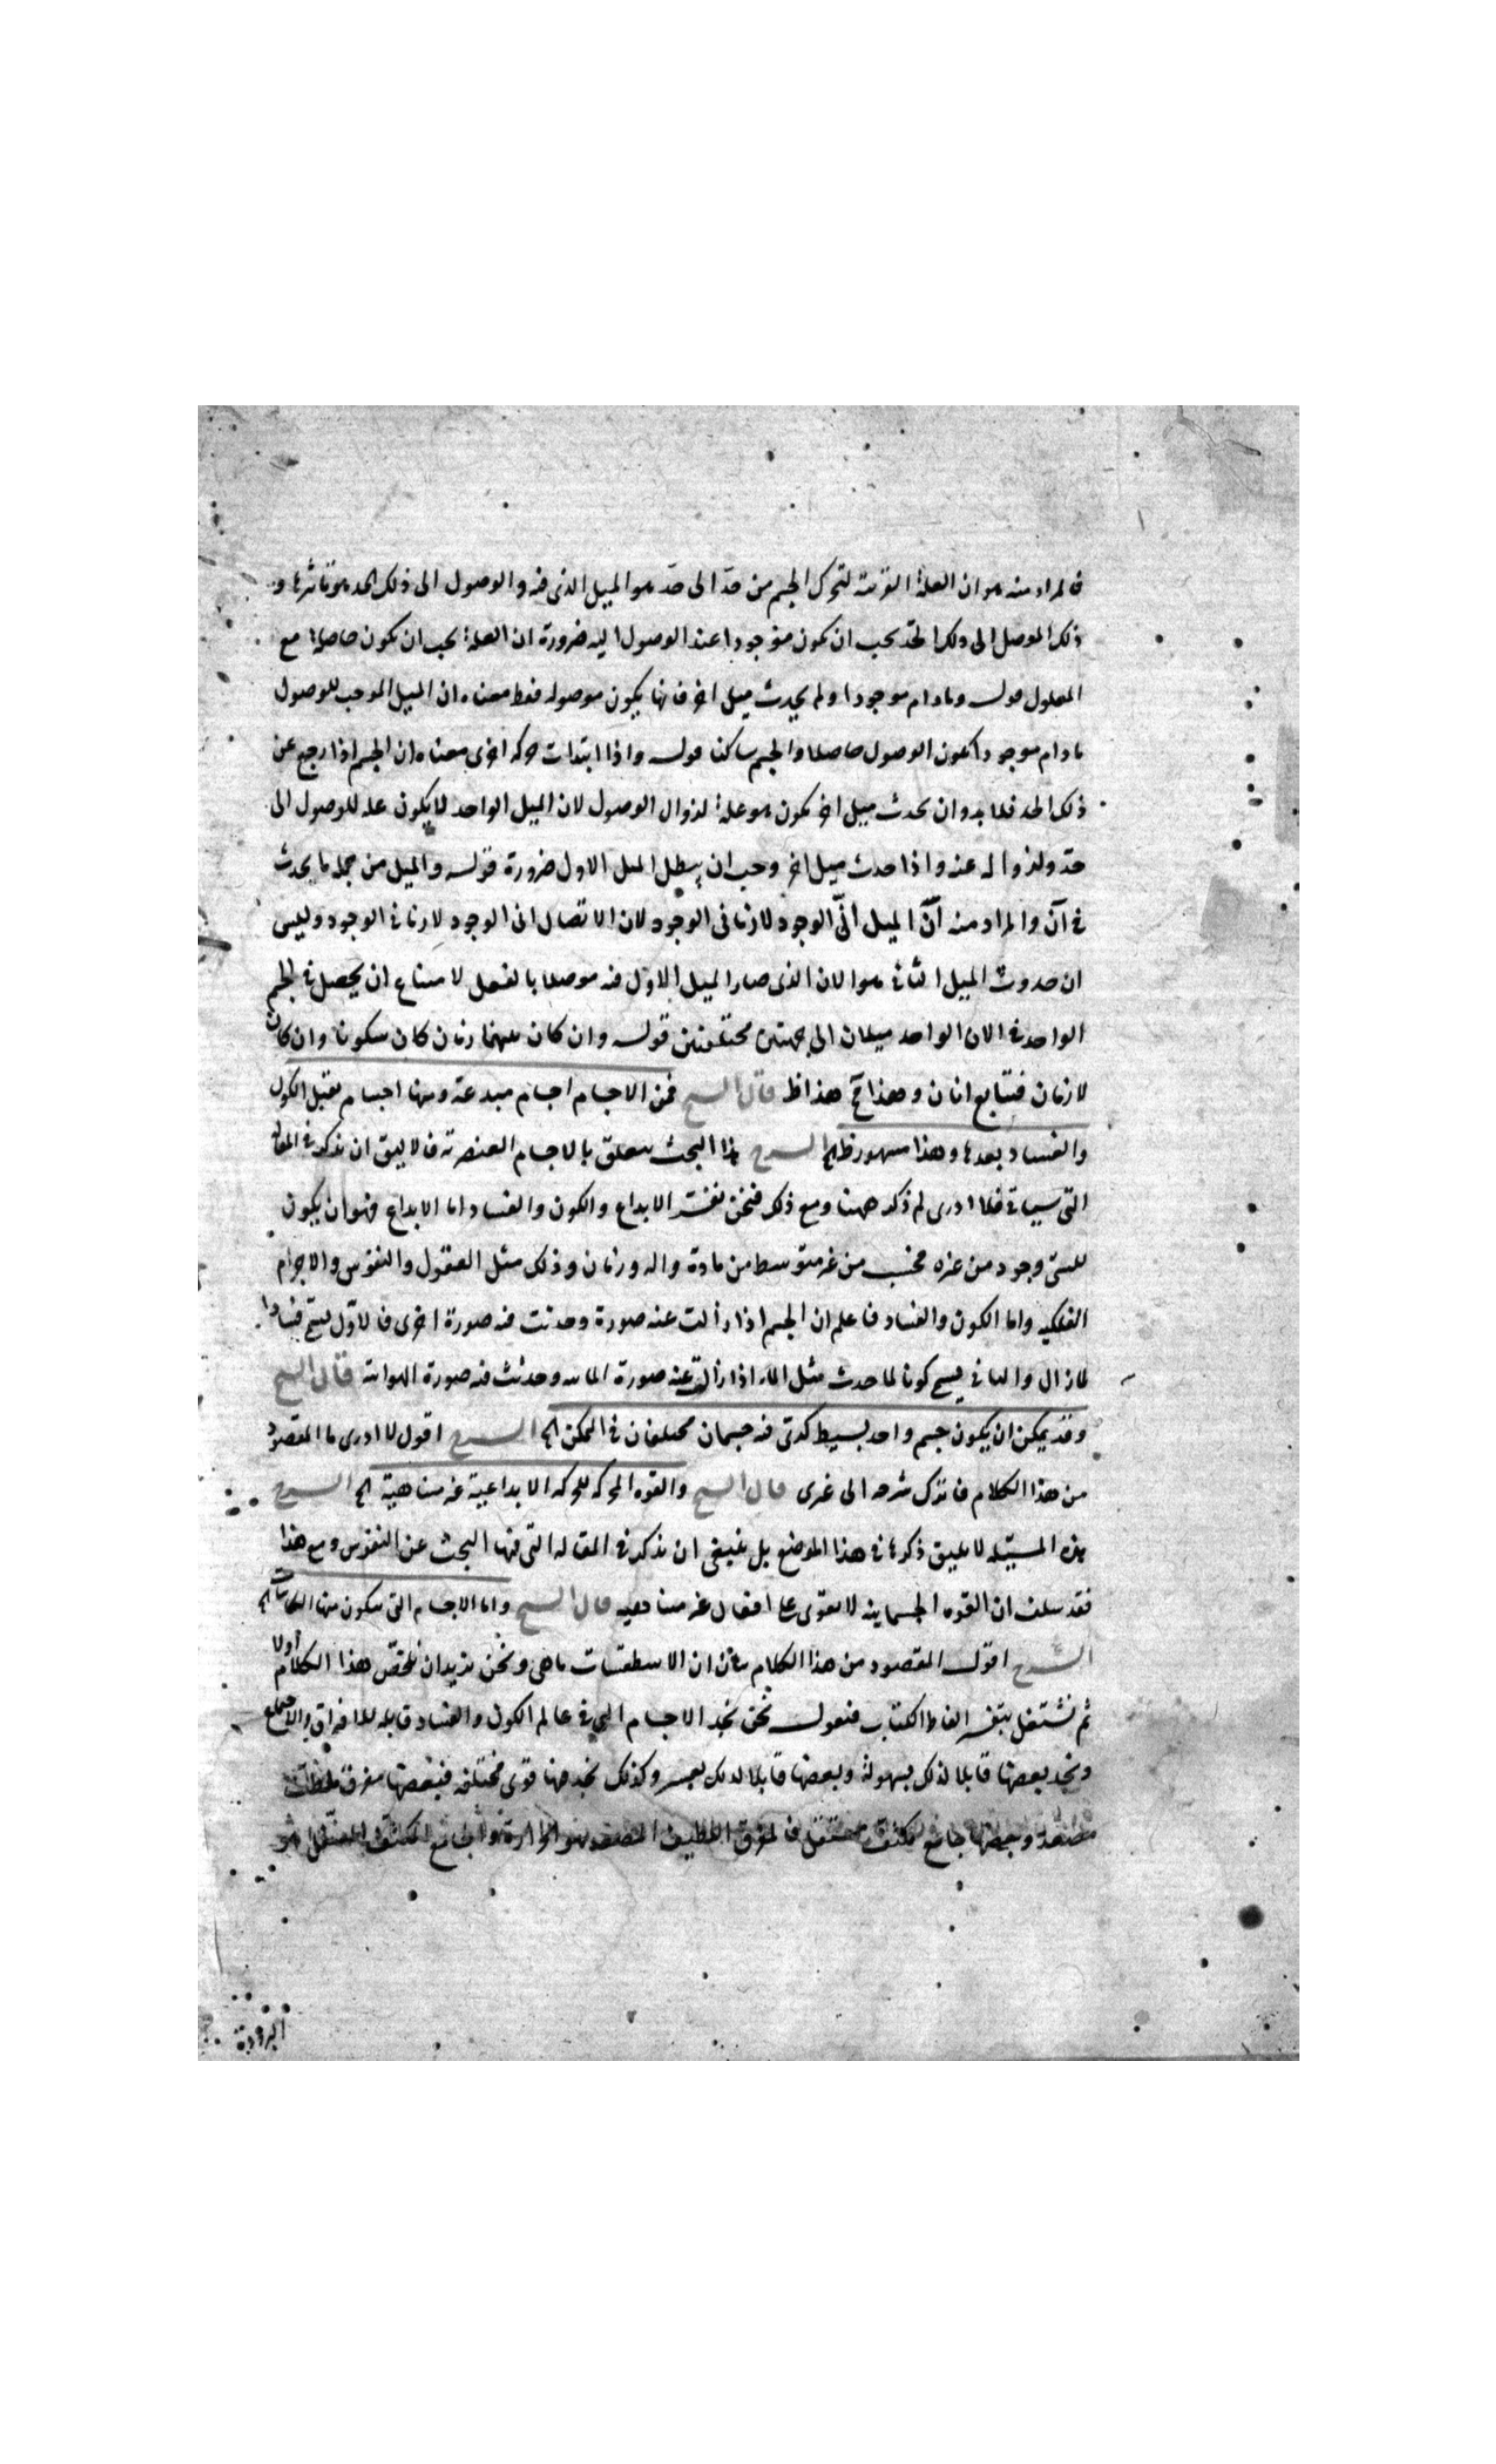 فالمراد منه هو ان العلة القريبة لتحرك الجسم من حدّ الى حدّ هو الميل الذى فيه والوصول الى ذلك الحد هو تاثيرها و
ذلك الموصل الى ذلك الحدّ يجب ان يكون موجودا عند الوصول اليه ضرورة ان العلة يجب ان يكون حاصلة مع
المعلول قوله ومادام موجودا ولم يحدث ميل اخر فانها يكون موصوله فقط معناه ان الميل الموجب للوصول
مادام موجودا يكون الوصول حاصلا والجسم ساكنا قوله واذا ابتدات حركه اخرى معناه ان الجسم اذا رجع عن
ذلك الحد فلا بد وان يحدث ميل اخر يكون هو علة لزوال الوصول لان الميل الواحد لا يكون عله للوصول الى
حدّ ولزواله عنه واذا حدث ميل اخر وجب ان يبطل الميل الاول ضرورة قوله والميل من جمله ما يحدث
فى آن والمراد منه أنّ الميل انّى الوجود لا زمانى الوجود لان الاتصال انى الوجود لا زمانى الوجود وليس
ان حدوث الميل الثانى هو الان الذى صار الميل الاول فيه موصلا بالفعل لامتناع ان يحصل فى الجسم
الواحد فى الان الواحد ميلان الى جهتين مختلفتين قوله وان كان بينهما زمان كان سكونا وان كان
لا زمان فيتابع انان وهذا مح هذا ظ قال الشيخ فمن الاجسام اجسام مبدعة ومنها اجسام يقبل الكون
والفساد بعدها وهذا مشهور ظ الخ الشرح هذا البحث يتعلق بالاجسام العنصرية فلا يليق ان يذكر فى المقالة
التى سياتى فلا ادرى لم ذكر ههنا ومع ذلك فنحن نفسّر الابداع والكون والفساد اما الابداع فهو ان يكون
للشئ وجود من غيره فحسب من غير متوسط من مادة واله وزمان وذلك مثل العقول والنفوس والاجرام
الفلكيه واما الكون والفساد فاعلم ان الجسم اذا زالت عنه صورة وحدثت فيه صورة اخرى فالاوّل يسمّى فسادا
لما زال والثانى يسمى كونا لما حدث مثل الماء اذا زالت عنه صورة المائيه وحدثت فيه صورة الهوائية قال الشيخ
وقد يمكن ان يكون جسم واحد بسيط فيه جسمان مختلفان فى الممكن الخ الشرح اقول لا ادرى ما المقصود
من هذا الكلام فاترك شرحه الى غيرى قال الشيخ والقوه المحركه للحركه الابداعية غير متناهية الخ الشرح
هذه المسئله لا يليق ذكرها فى هذا الموضع بل ينبغى ان يذكر فى المقاله التى فيها البحث عن النفوس ومع هذا
فقد سلف ان القوه الجسمانيه لا يقوى على افعال غير متناهيه قال الشيخ واما الاجسام التى يتكون منها الكائنات الخ
الشرح اقول المقصود من هذا الكلام بيان ان الاسطقسات ماهى ونحن نريد ان نلخصّ هذا الكلام أولا
ثم نشتغل بتفسير الفاظ الكتاب فنقول نحن نجد الاجسام التى فى عالم الكون والفساد قابله للافتراق والاجتماع
ونجد بعضها قابلا لذلك بسهولة وبعضها قابلا لذلك بعسر وكذلك نجد منها قوى مختلفه فبعضها مفرق ملطف
مصعد وبعضها جامع مكثف مثقل فالمفرق الملطف المصعد هو الحرارة والجامع المكثف المثقل هو
البرودة